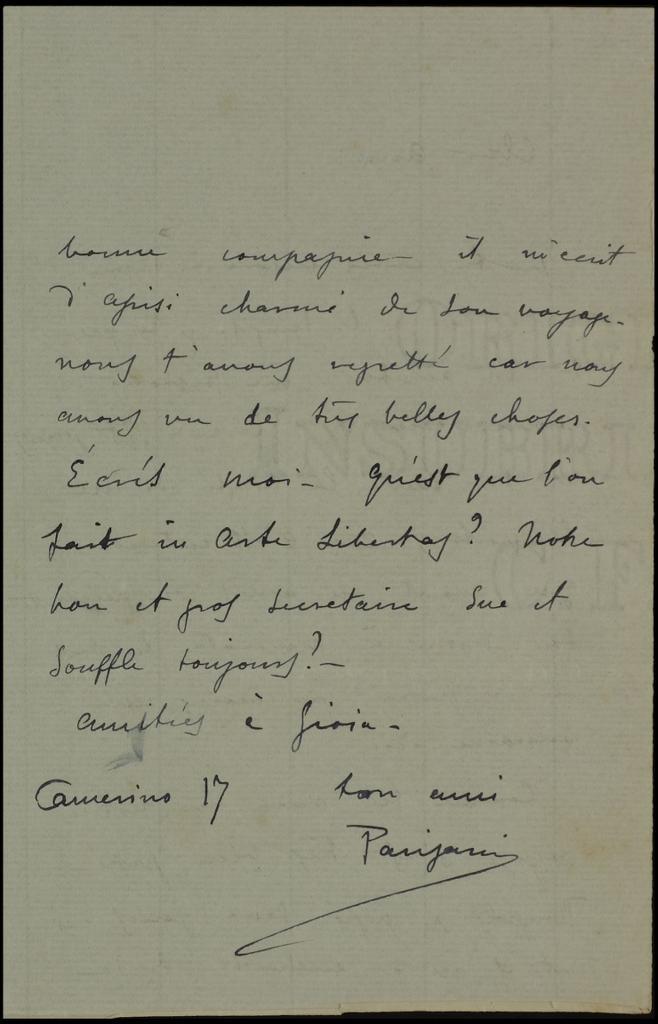 bonne compagnie – il m'écrit
d'Assisi charmé de son voyage.
nous t'avons regretté car nous
avons vu de très belles choses.
Écris moi – Qu'est que l'on
fait in Arte Libertas? Notre
bon et gros secretaire sue et
souffle toujours? –
amitiés à Gioia –
Camerino 17 ton ami
Parisani